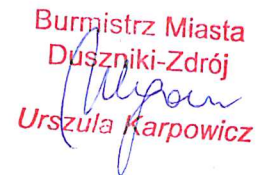 Burmistrz Miasta
Duszniki-Zdrój
Urszula Karpowicz